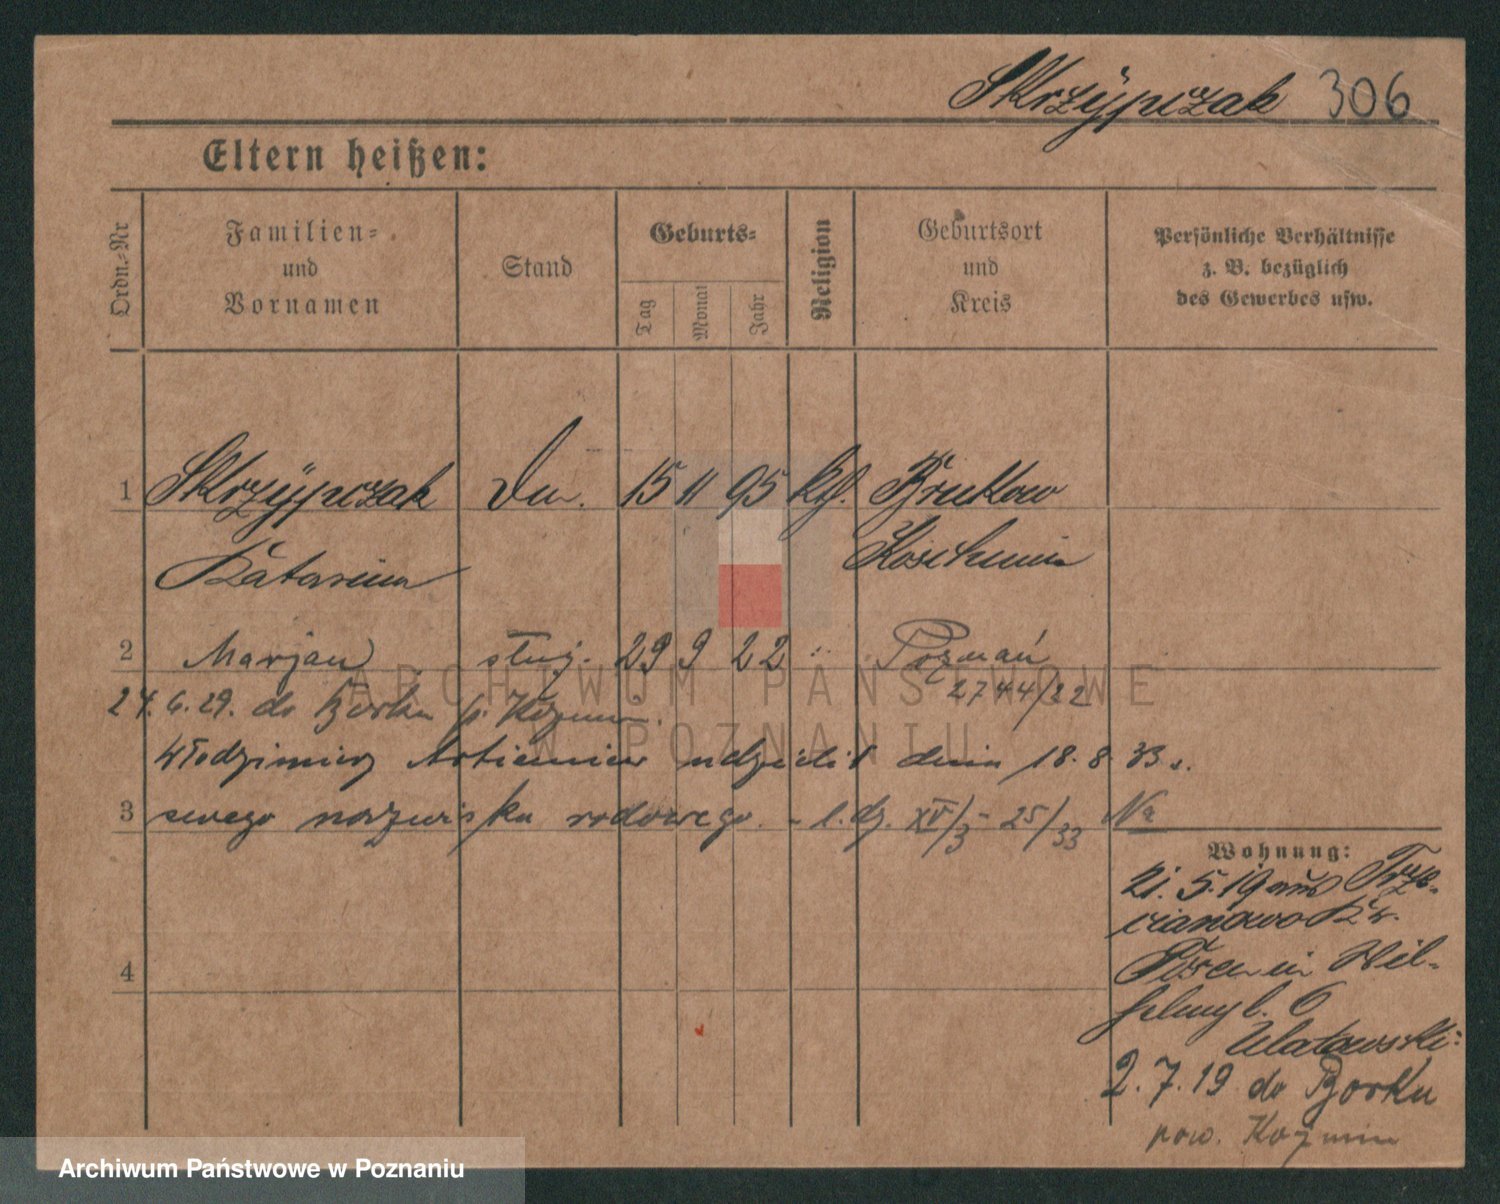 Skrzypczak 306
Eltern heißen:
Ordn.-Nr
Familien- und Vornamen
Stand
Geburts-
Tag
Monat
Jahr
Religion
Geburtsort und Kreis
Persönliche Verhältnisse z. B. bezüglich des Gewerbes usw.
1 Skrzypczak 15 11 95 kth. Bruckow
Katarina Koschmin
2 Marjan służ. 29 9 22 " Poznań
2744/22
24.6.29. do Borku p. Koźmin.
Włodzimierz Artiemiew udzielił dnia 18.8.33 r.
3 swego nazwiska rodowego. - l. dz. XV/3 - 25/33
Wohnung:
21. 5. 19 aus Trze-
cianowo Kr.
in Wil-
helmyl. 6
Ulatowski:
2. 7. 19 do Borku
pow. Koźmin
4
ARCHIWUM PAŃSTWOWE
W POZNANIU
Archiwum Państwowe w Poznaniu